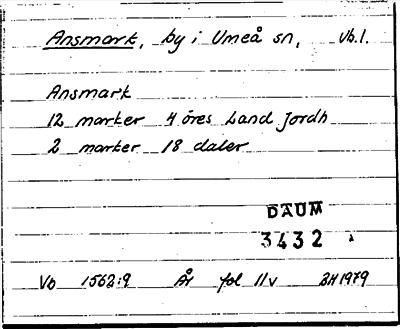 Ansmark, by i Umeå sn, Vb.l.
Ansmark
12 marker 4 öres Land Jordh
2 marker 18 daler
DAUM
3432
Vb 1562:9 År fol 11v BH1979